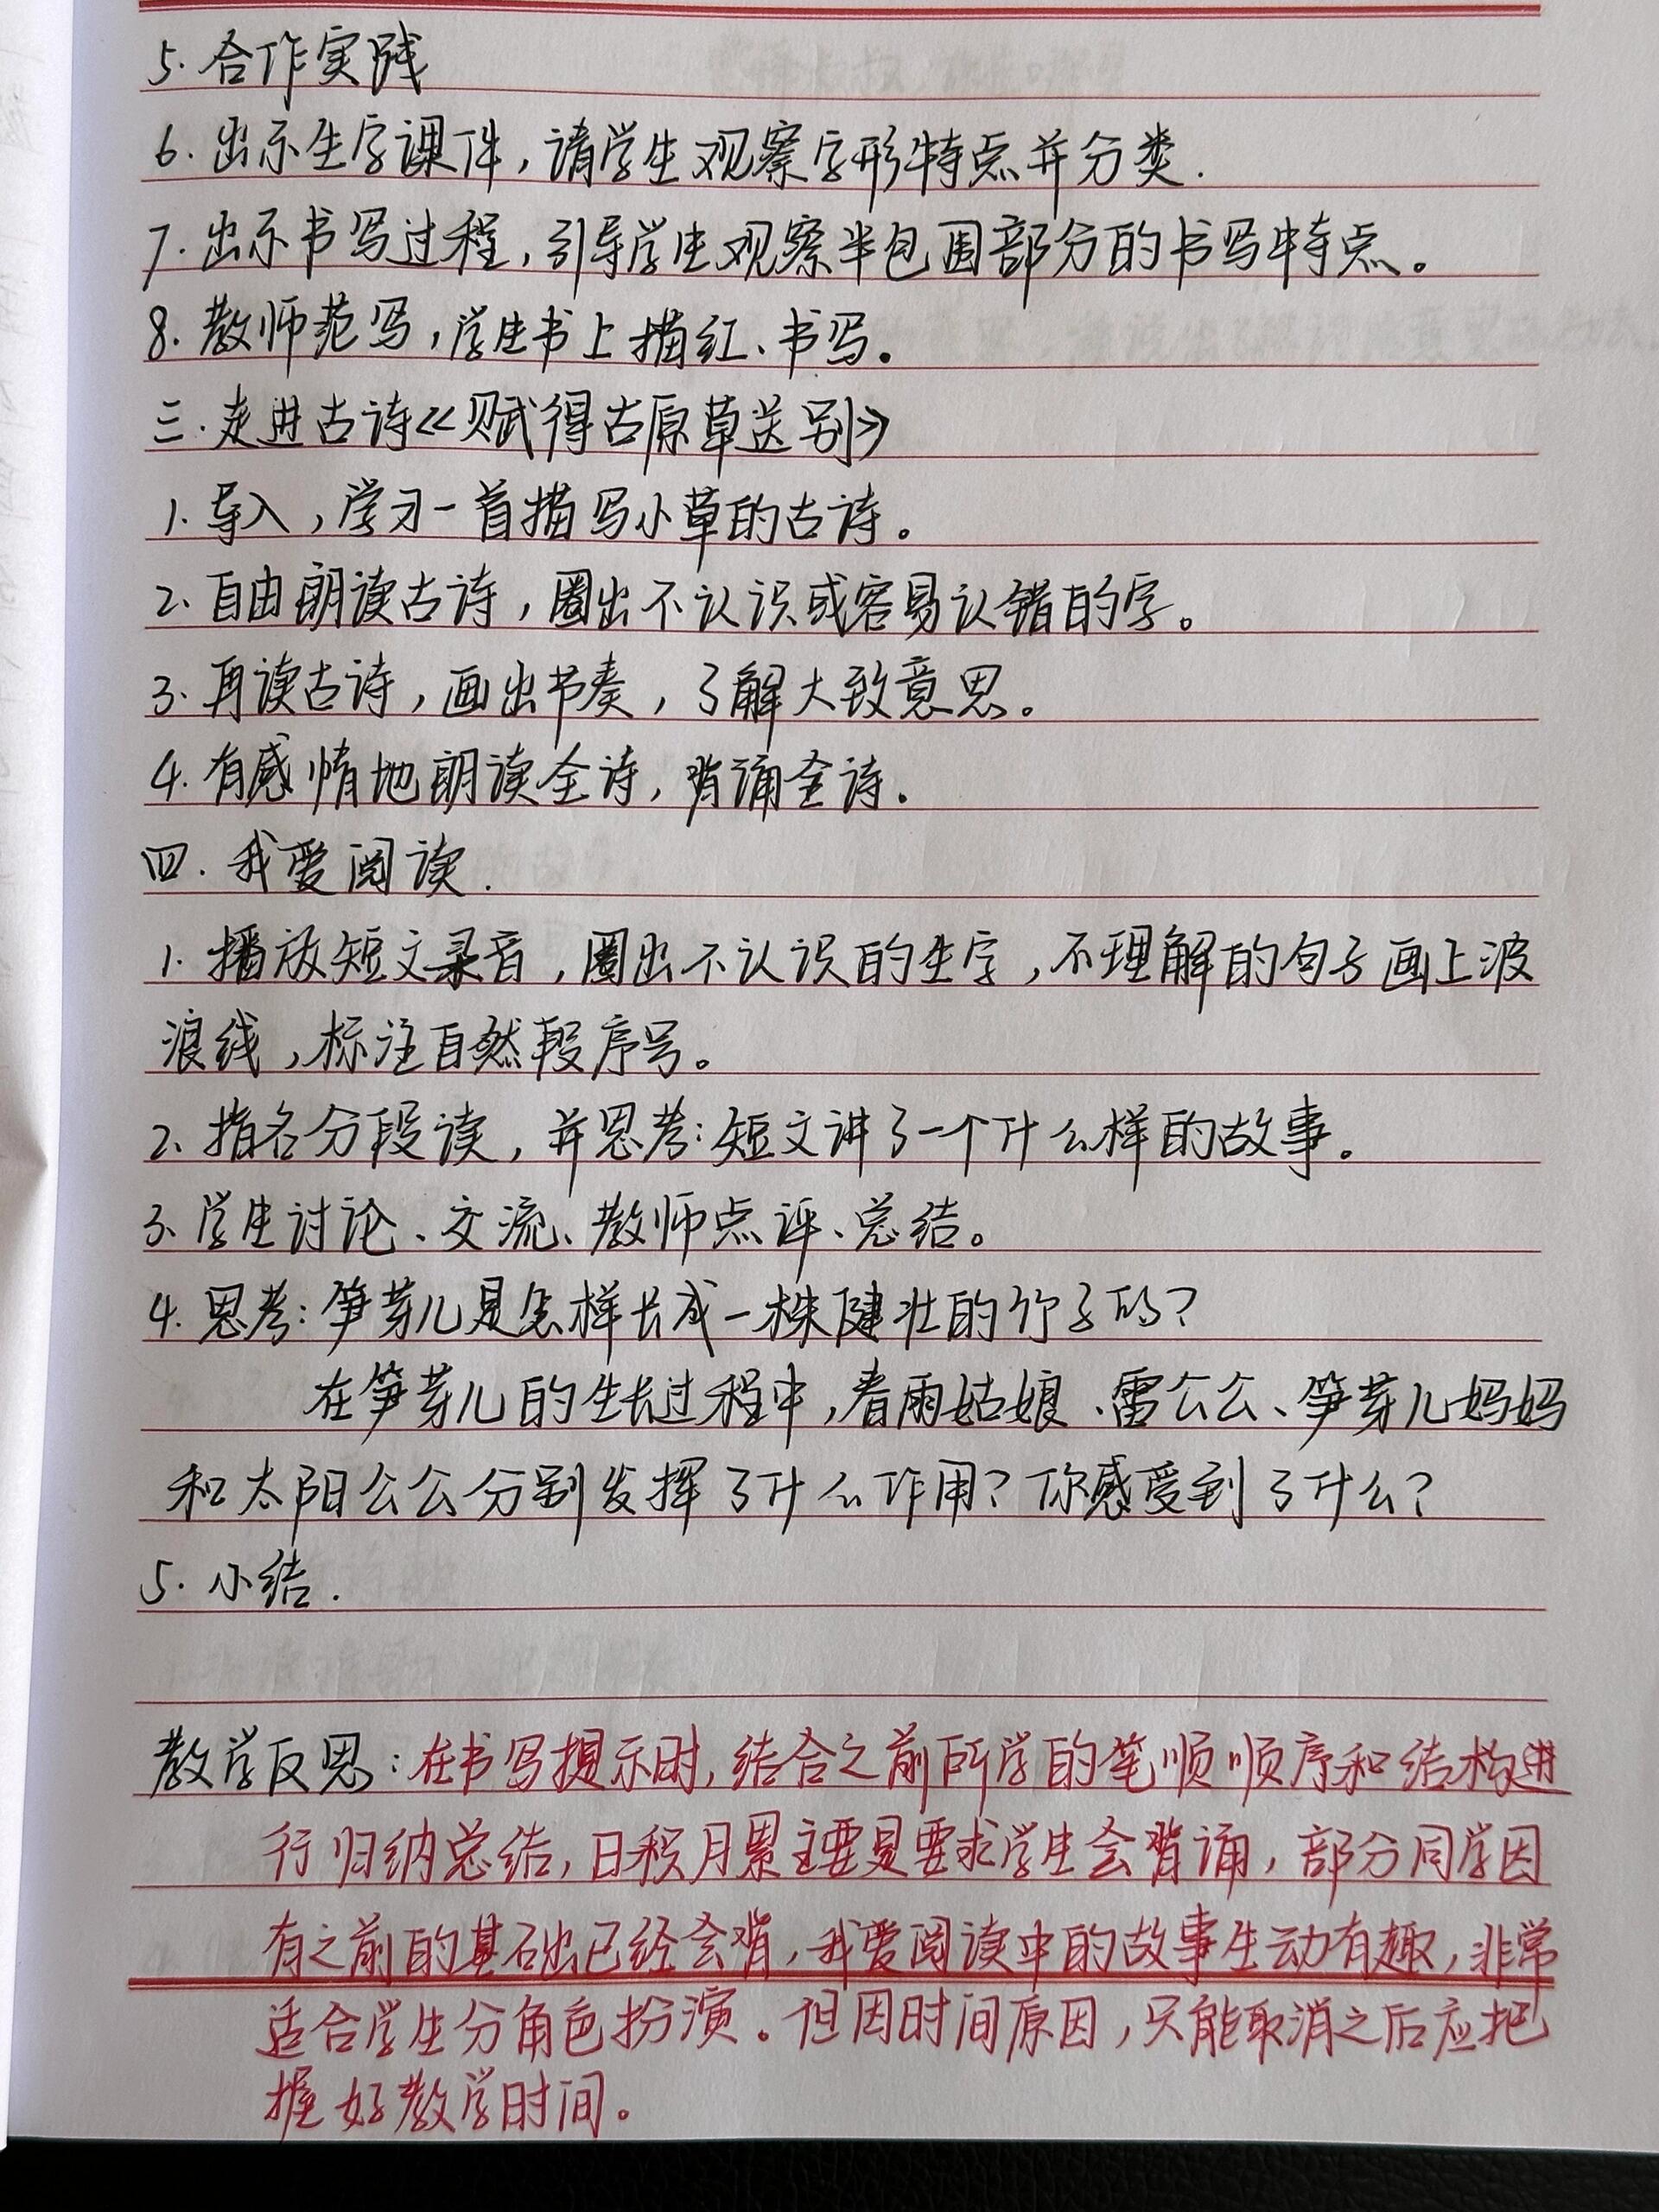 5. 合作实践
6. 出示生字课件,请学生观察字形特点并分类.
7. 出示书写过程,引导学生观察半包围部分的书写特点。
8. 教师范写,学生书上描红、书写。
三. 走进古诗《赋得古原草送别》
1. 导入,学习一首描写小草的古诗。
2. 自由朗读古诗,圈出不认识或容易认错的字。
3. 再读古诗,画出节奏,了解大致意思。
4. 有感情地朗读全诗,背诵全诗.
四. 我爱阅读.
1. 播放短文录音,圈出不认识的生字,不理解的句子画上波
浪线,标注自然段序号。
2. 指名分段读,并思考:短文讲了一个什么样的故事。
3. 学生讨论、交流、教师点评、总结。
4. 思考:笋芽儿是怎样长成一株健壮的竹子的?
在笋芽儿的生长过程中,春雨姑娘、雷公公、笋芽儿妈妈
和太阳公公分别发挥了什么作用?你感受到了什么?
5. 小结.
教学反思:在书写提示时,结合之前所学的笔顺顺序和结构进
行归纳总结,日积月累主要是要求学生会背诵,部分同学因
有之前的基础已经会背,我爱阅读中的故事生动有趣,非常
适合学生分角色扮演。但因时间原因,只能取消之后应把
握好教学时间。